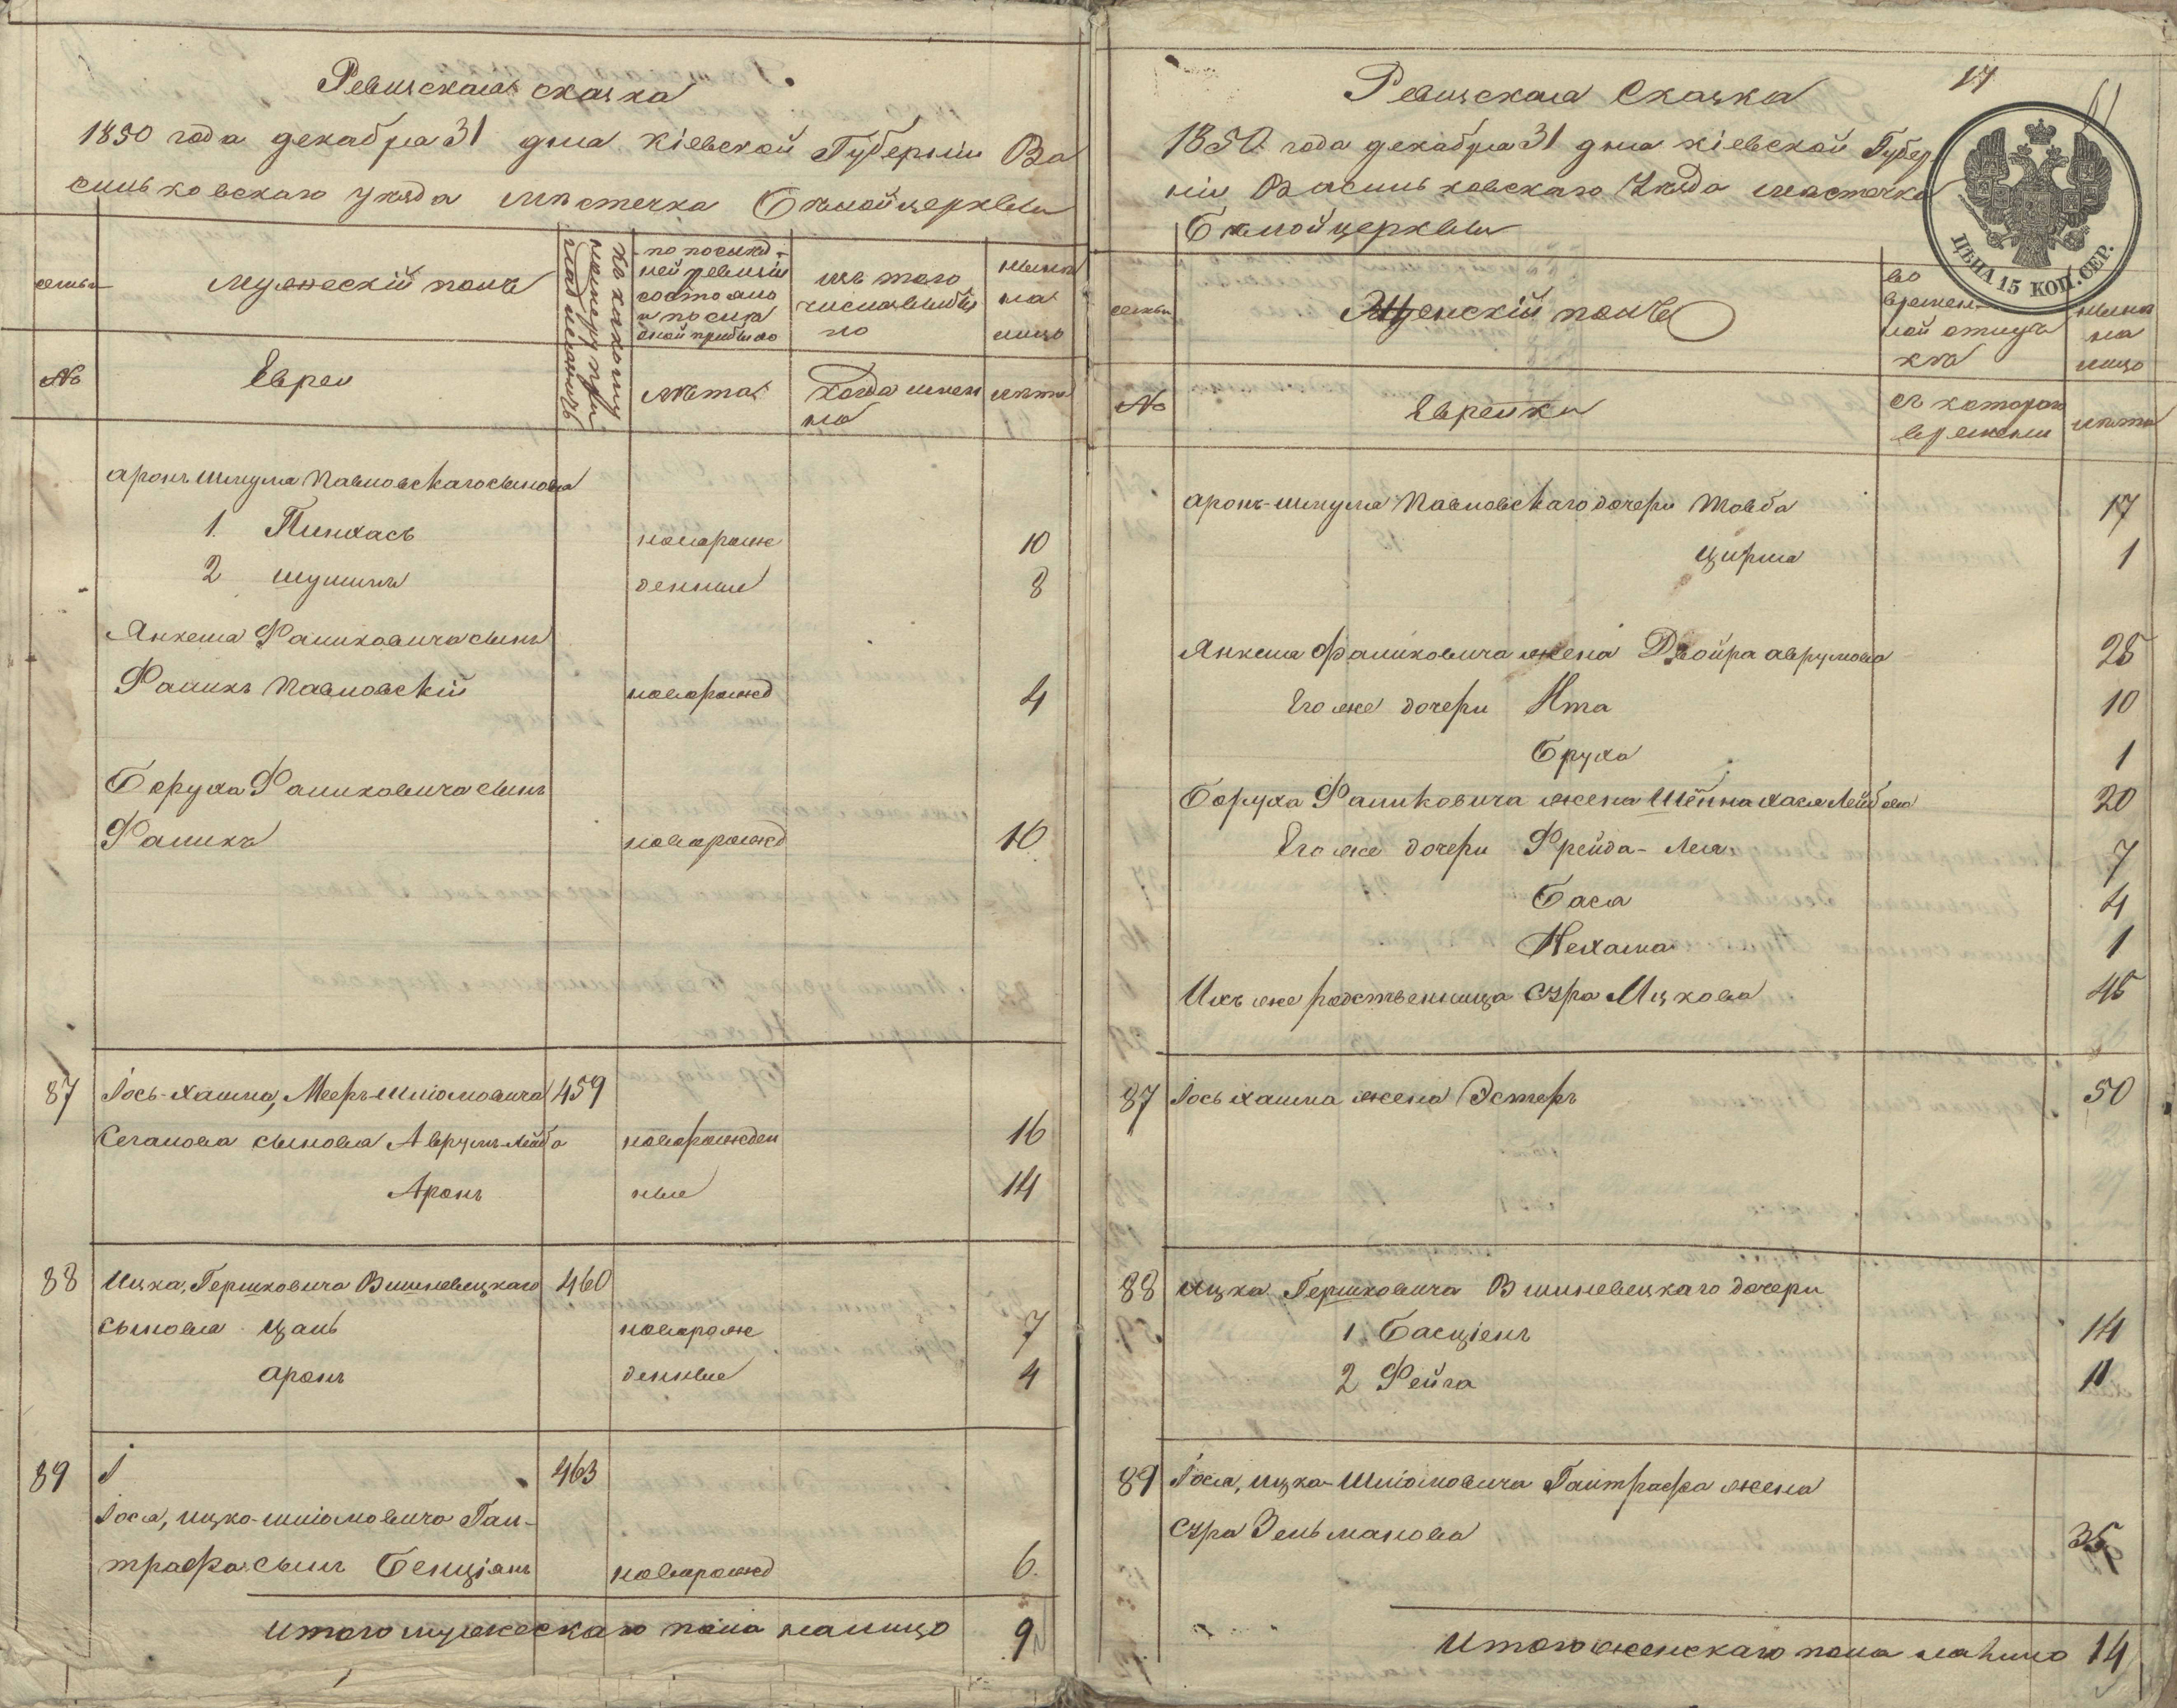 Ревизская сказка
1850 года декабря 31 дня Кіевской Губерніи Ва
сильковскаго уѣзда мѣстечка Бѣлойцеркви
семьи
Мужескій полъ
по послѣд-
ней ревизіи
состояло
и послѣ
оной прибыло
изъ того
числа выбы
ло
нынѣ
на
лицо
№
Евреи
лѣта
Когда имен
но
лѣта
Аронъ Шмуля Павловскаго сыновья
1. Пинхасъ новорож 10
2 Шулимъ денные 8
Янкеля Фаликовича сынъ
Фаликъ Павловскій новорожд 4
Боруха Фаликовича сынъ
Фаликъ новорожд 10
87 Іось-Хаима, Мееръ-Шліомовича 459
Сечанова сыновья Аврумъ-Лейба новорожден 16
Аронъ ные 14
88 Ицка, Гершковича Вишневецкаго 460
сыновья Цаль новорож 7
Аронъ денные 4
89 І 463
Іося, Ицко-Шліомовича Гант-
трафа сынъ Бенціонъ новорожд 6.
Итого мужескаго пола налицо 9
17
Ревизская Сказка
1850 года декабря 31 дня Кіевской Губер-
ніи Васильковскаго Уѣзда мѣстечка
Бѣлойцеркви
ЦѢНА 15 КОП. СЕР.
семьи
Женскій полъ
во
времен-
ной отлуч
кѣ
нынѣ
на
лицо
№
Еврейки
съ котораго
времени
лѣта
Аронъ-Шмуля Павловскаго дочери Товба 17
Цирля 1
Янкеля Фаликовича жена Двойра Аврумова 25
Его же дочери Ита 10
Бруха 1
Боруха Фаликовича жена Шейна Хася Лейбова 20
Его же дочери Фрейда-Лея 7
Бася 4
Нехама 1
Ихъ же родственница Сура Ицкова 45
87 Іось Хаима жена Эстеръ 50
88 Ицка Гершковича Вишневецкаго дочери
1 Басціенъ 14
2 Фейга 11
89 Іося, Ицка-Шліомовича Гантрафа жена
Сура Зельманова 35
Итого женскаго пола налицо 14